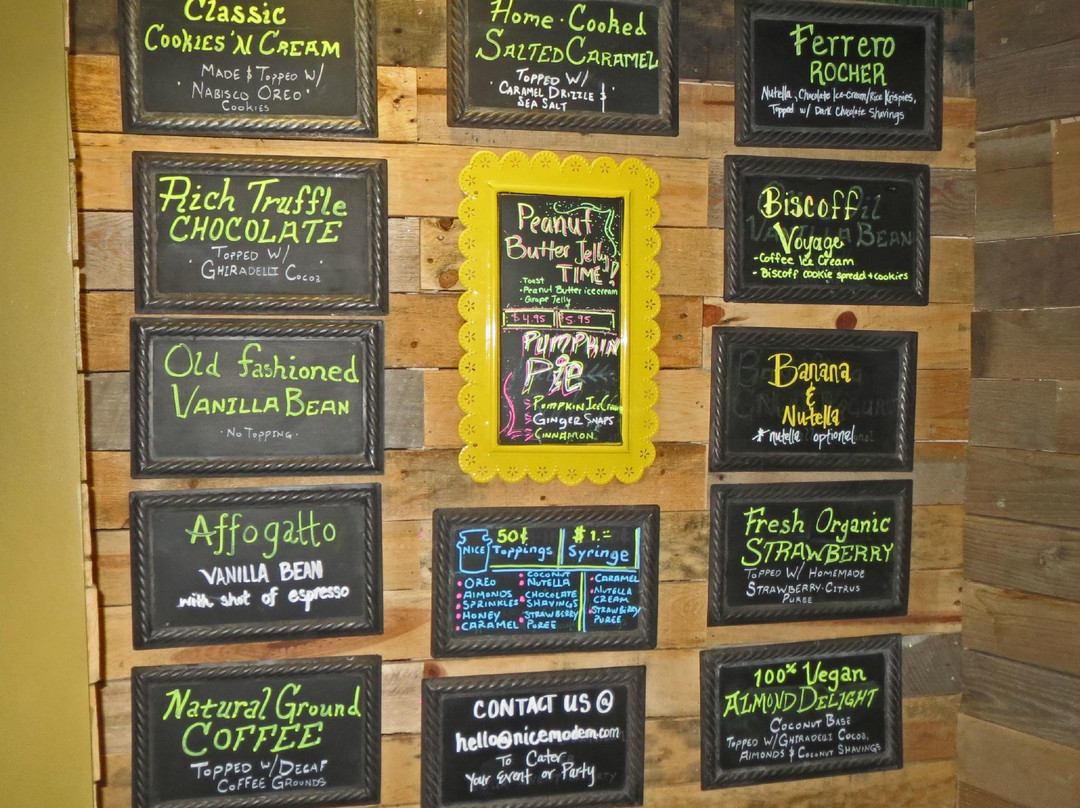 Classic
COOKIES 'N CREAM
MADE & TOPPED W/
NABISCO OREO
COOKIES
Home-Cooked
SALTED CARAMEL
TOPPED W/
CARAMEL DRIZZLE &
SEA SALT
Ferrero
ROCHER
Nutella, Chocolate Ice-cream/Rice Krispies,
Topped w/ Dark Chocolate Shavings
Rich Truffle
CHOCOLATE
TOPPED W/
GHIRADELLI COCOA
Peanut
Butter Jelly
TIME!
• Toast
• Peanut Butter icecream
• Grape Jelly
$4.95 $5.95
PUMPKIN
PIE
PUMPKIN ICE CREAM
GINGER SNAPS
CINNAMON
BISCOFF
Voyage
- Coffee Ice Cream
- Biscoff cookie spread + cookies
Old fashioned
VANILLA BEAN
· NO TOPPING ·
Banana
&
Nutella
* nutella optional
Affogatto
VANILLA BEAN
with shot of espresso
NICE
50¢
Toppings
$1.=
Syringe
• OREO
• ALMONDS
• SPRINKLES
• HONEY
• CARAMEL
• COCONUT
• NUTELLA
• CHOCOLATE
SHAVINGS
• STRAWBERRY
PUREE
• CARAMEL
• NUTELLA
CREAM
• STRAWBERRY
PUREE
Fresh Organic
STRAWBERRY
TOPPED W/ HOMEMADE
STRAWBERRY-CITRUS
PUREE
Natural Ground
COFFEE
TOPPED W/DECAF
COFFEE GROUNDS
CONTACT US @
hello@nicemodern.com
To Cater
Your Event or Party
100% Vegan
ALMOND DELIGHT
COCONUT BASE
TOPPED W/GHIRADELLI COCOA,
ALMONDS & COCONUT SHAVINGS